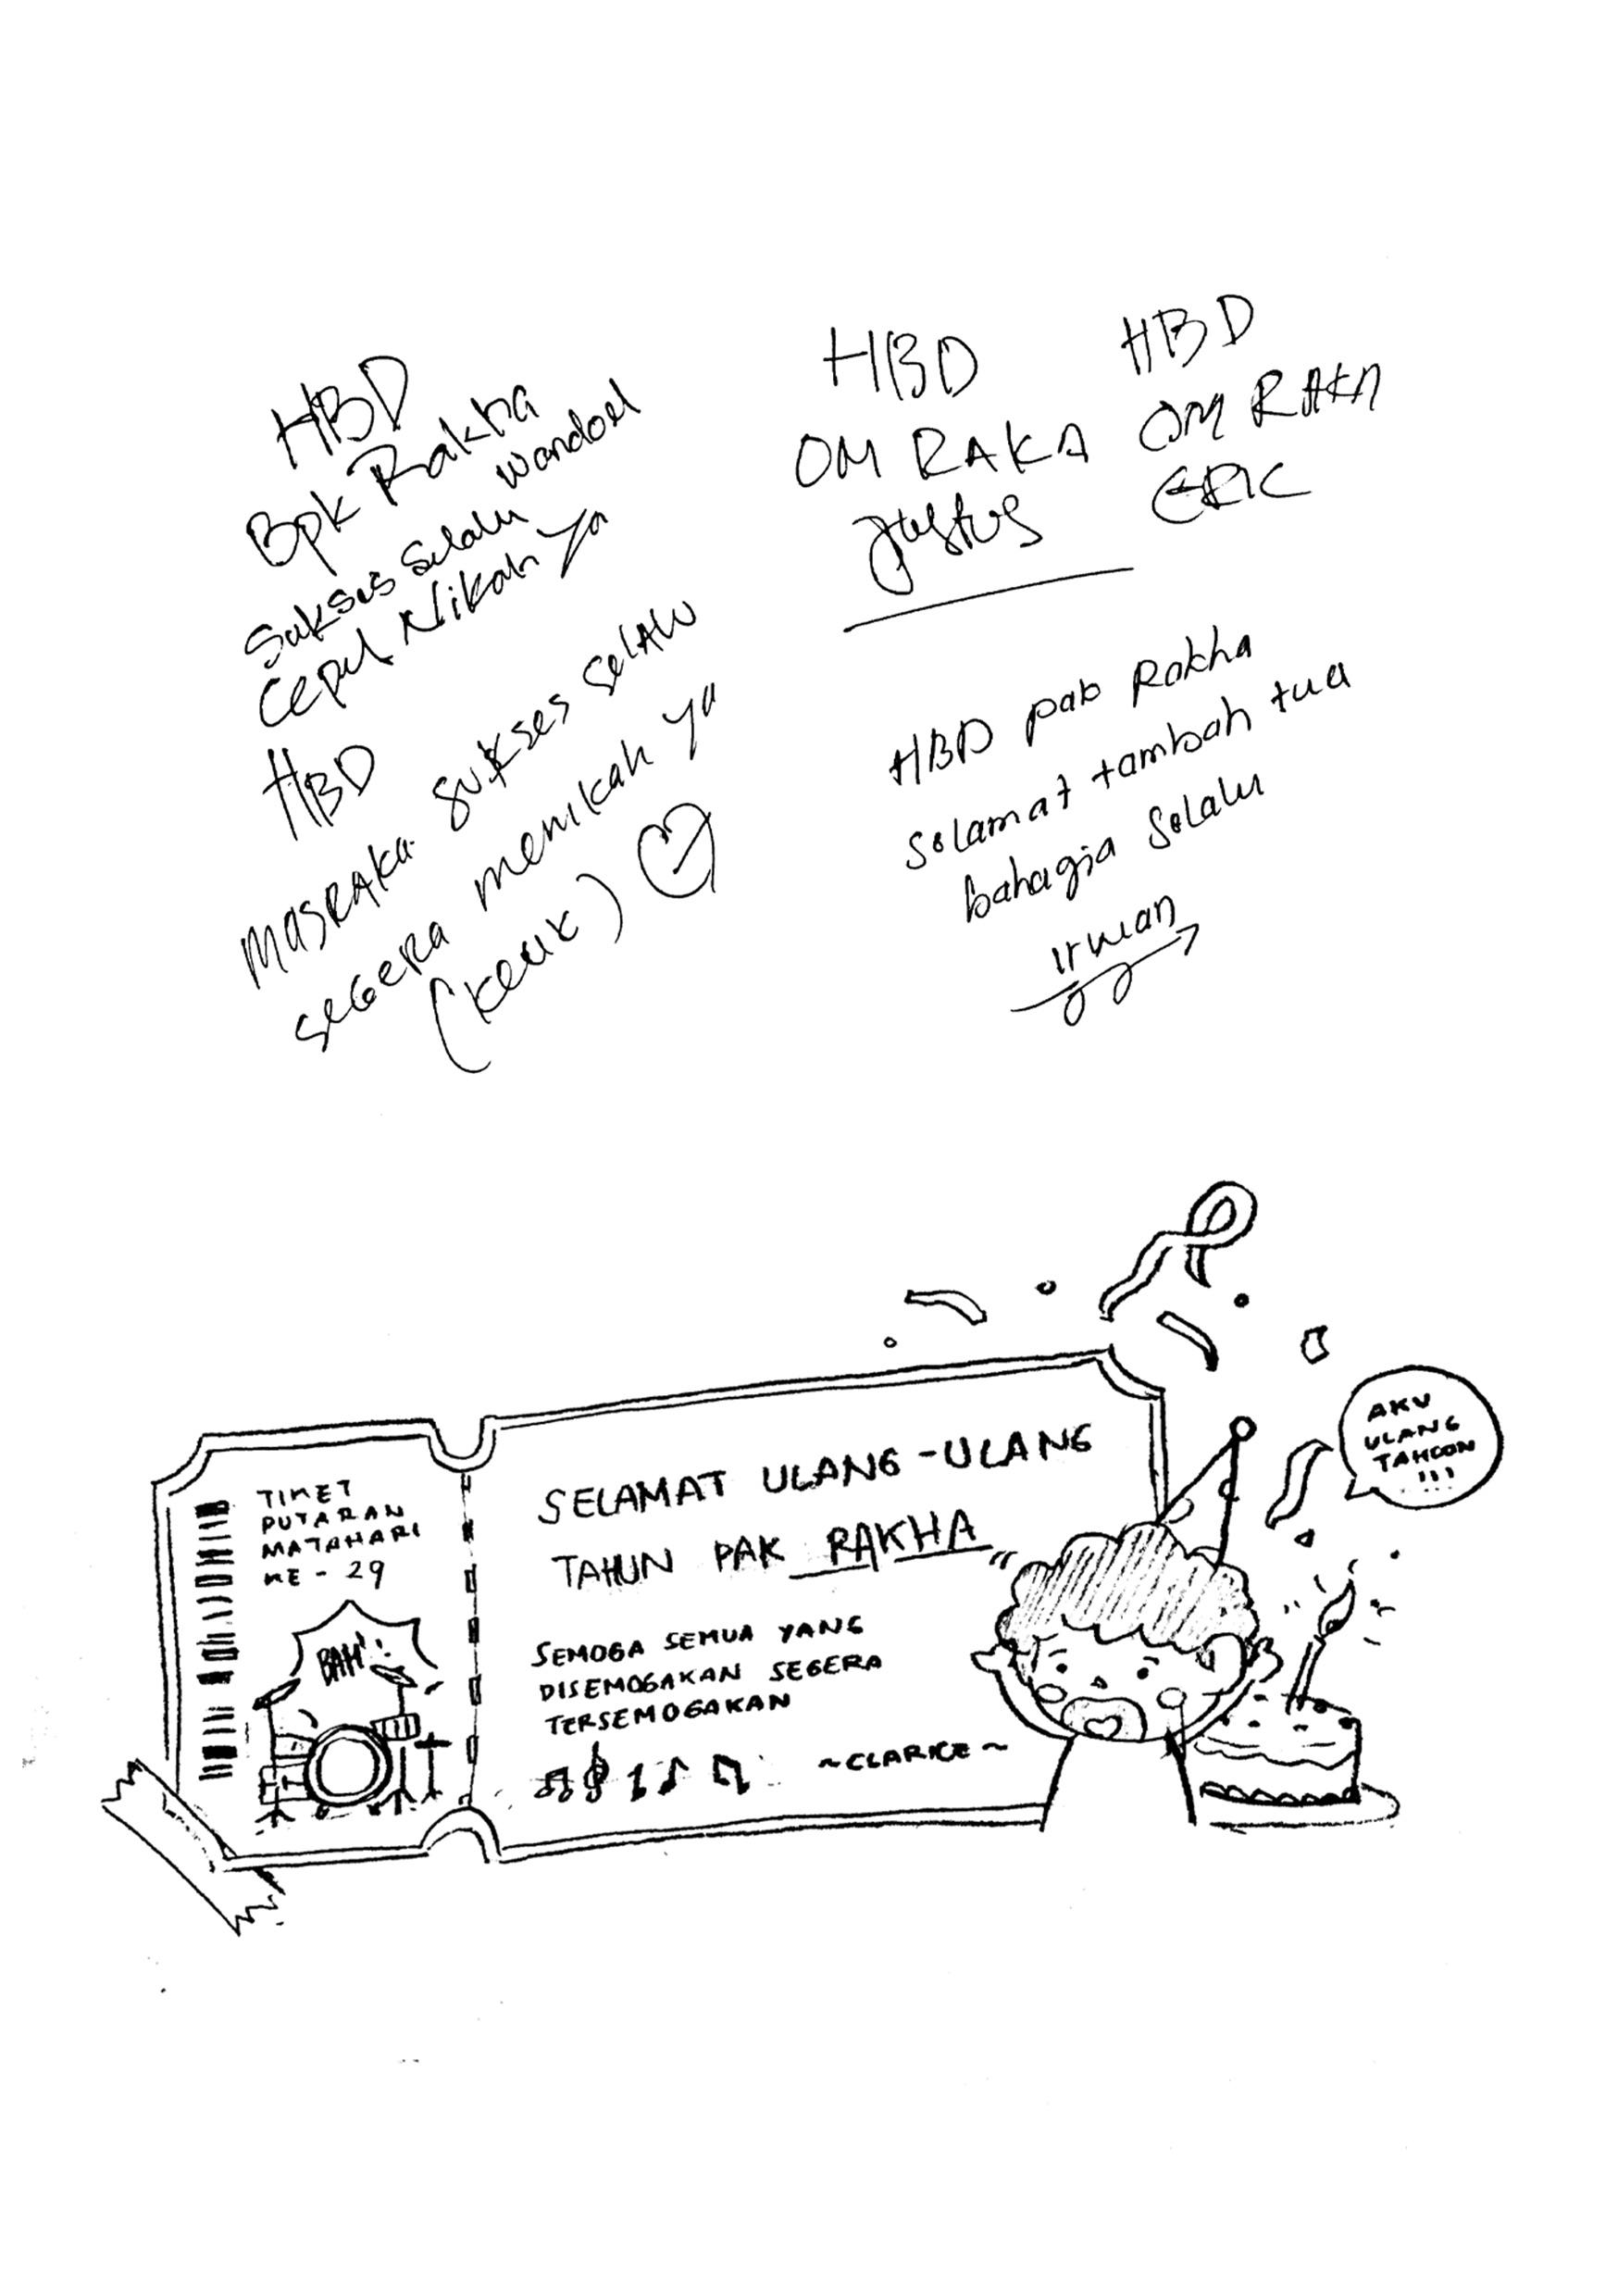 HBD
Bpk Rakha
wandoel
Sukses Selalu
Cepet Nikah Ya
HBD
MASRAKA. SUKSES SELALU
SEGERA menikah ya
HBD
OM RAKA
Justus
HBD
OM RAKA
ERIC
HBD pak Rakha
Selamat tambah tua
bahagia selalu
irwan
TIKET
PUTARAN
MATAHARI
KE - 29
BAM!
SELAMAT ULANG-ULANG
TAHUN PAK RAKHA
SEMOGA SEMUA YANG
DISEMOGAKAN SEGERA
TERSEMOGAKAN
~CLARICE~
AKU
ULANG
TAHOON
!!!